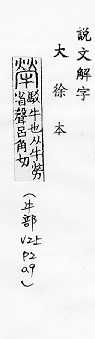 說文解字
大徐本
犖駁牛也从牛勞
省聲呂角切
(牛部V2上P2a9)